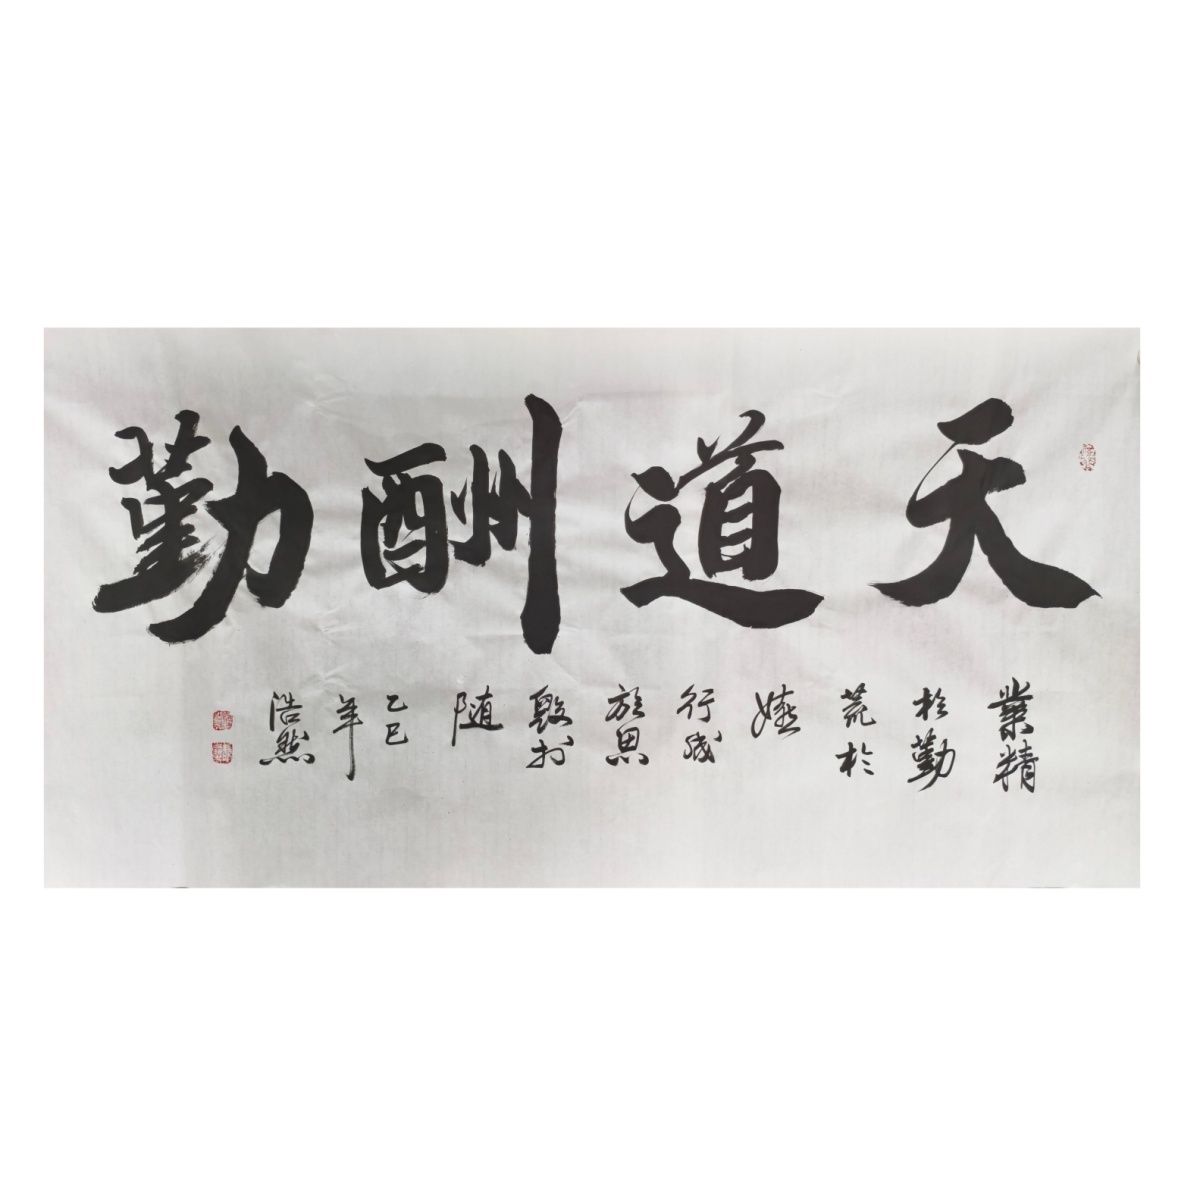 天道酬勤
業精
於勤
荒於
嬉
行成
於思
毀於
随
乙巳
年
浩然